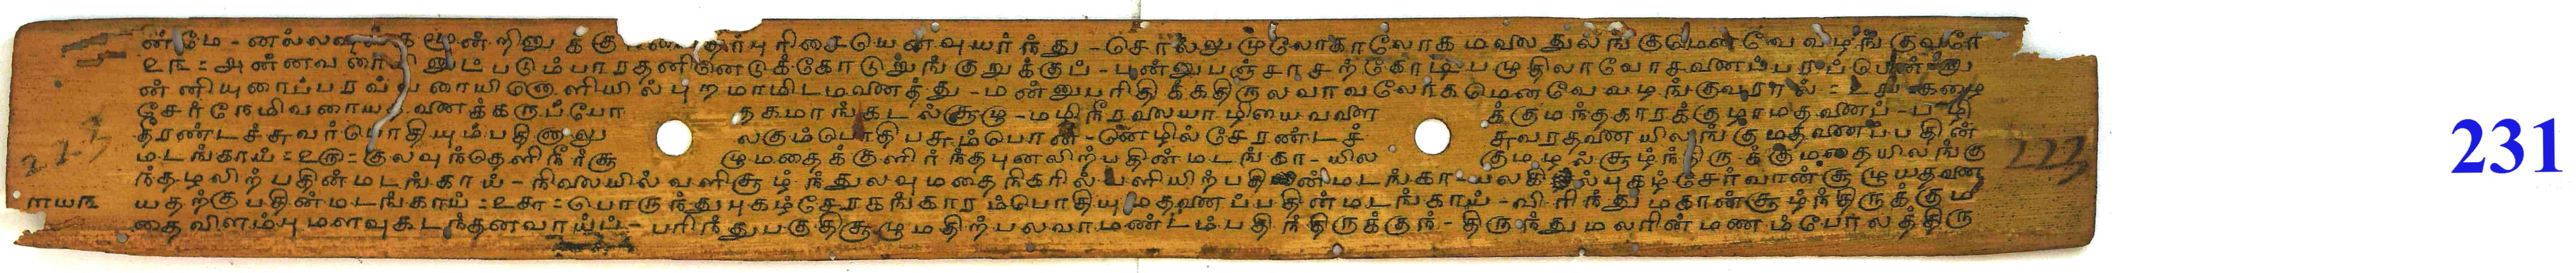 ன்மே - னல்லவ மூன் றினு க் கு புரிசையெனவுயர் ந்து - சொல்லு முலோகாலோக மலை துலங்குமெனவே வழங்குவரே
உ௩ = அன்னவ ரைக் னுட் படும்பா ரதனி னெடுக்கோடு குறுக்குப் - பன்னு பஞ்சாசற்கோடி பழுதிலாயோசனைப்பரப்பென்னு
ன்னியுரைப்பரவ் வரையினொளியில் புறமாமிடமனைத்து - மன்னுபரிதி க்கதிருலவாவலோகமெனவே வழங்குவரால் =
சேர்நேமிவரையதனைக்கருப்போ தகமாங்கடல்சூழு - மழிநீரவலையாழியைவளை க்குமந்தகாரக்குழாமதனைப் -
திரண்டச்சுவர்பொதியும்பதினாலு லகும்பொதிபசும்பொன் - னெழில்சேரண்டச் சுவரதனையிலங்குமதனைப்பதின்
மடங்காய் = உ௫ = குலவுந்தெளிநீர்சூ ழுமதைக்குளிர்ந்தபுனலிற்பதின்மடங்கா - யில குமழல்சூழ்ந்திருக்குமதையிலங்கு
ந்தழலிற் பதின்மடங்காய் - நிலையில் வளிசூழ் ந்துலவுமதைநிகரில் வளியிற்பதின்மடங்கா - யலகில்புகழ்சேர்வான்சூழுமதனை
யதற்குபதின்மடங்காய் = உ௬ = பொருந்துபுகழ்சேரகங்கார ம்பொதியுமதனைப்பதின்மடங்காய் - விரிந்து மகான்சூழ்ந்திருக்கும
தைவிளம்பு மளவுகடந்தனவாய்ப் - பரிந்துபகுதிசூழுமதிற்பலவாமண்டம்பதிந்திருக்குந் - திருந்துமலரின்மணம்போலத்திரு
223
231